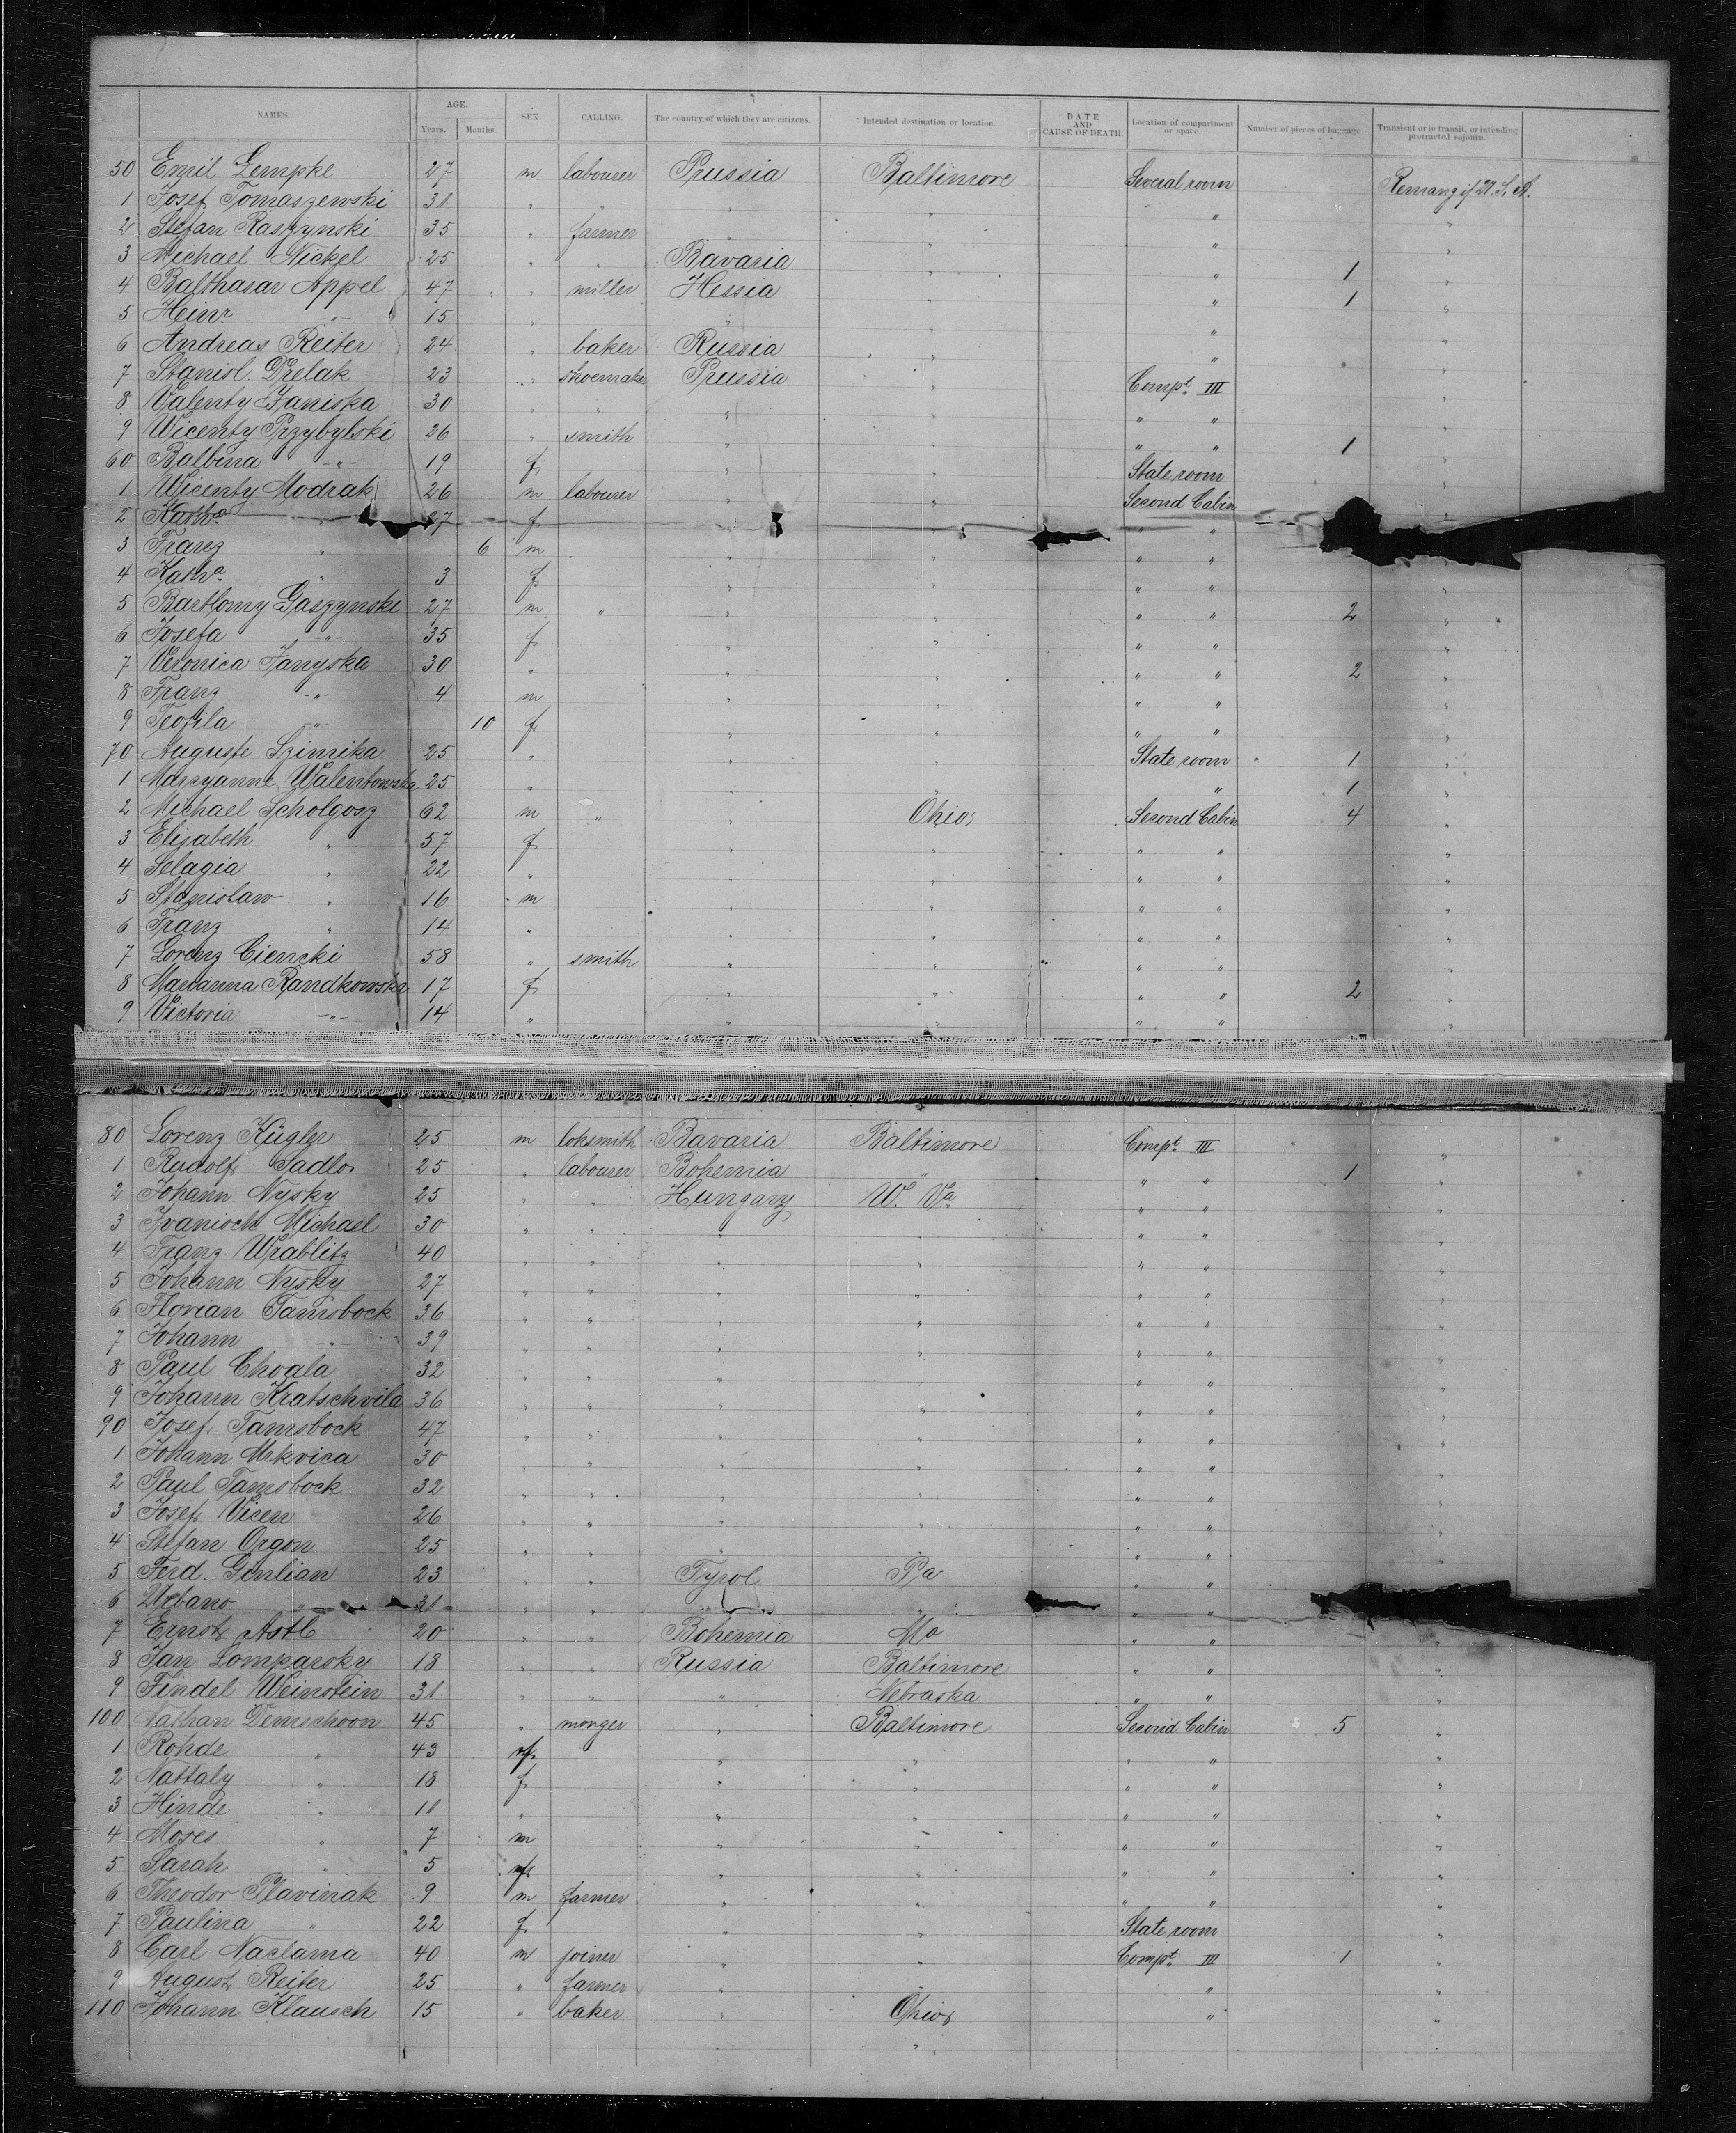 NAMES. AGE. Years. Months. SEX. CALLING. The country of which they are citizens. Intended destination or location. DATE AND CAUSE OF DEATH Location of compartment or space. Number of pieces of baggage. Transient or in transit, or intending protracted sojourn.
50 Emil Lempke 27 m labourer Prussia Baltimore Several room
1 Josef Tomaszewski 31 " " " " " "
2 Stefan Raszynski 35 " farmer " " " "
3 Michael Nickel 25 " " Bavaria " " 1 "
4 Balthasar Appel 47 " miller Hessia " " 1 "
5 Heinr. -"- 15 " " " " "
6 Andreas Reiter 24 " baker Russia " " "
7 Stanisl. Drelak 23 " shoemaker Prussia " Compt. III "
8 Valenty Janiska 30 " " " " " " "
9 Wicenty Przybylski 26 " smith " " " " 1 "
60 Balbina -"- 19 f " " State room "
1 Wicenty Modrak 26 m labourer " " Second Cabin "
2 Katha " 27 f " " " "
3 Franz " 6 m " " " "
4 Katha " 3 f " " " " "
5 Bartlomy Gaszynski 27 m " " " " " 2 "
6 Josefa -"- 35 f " " " " "
7 Veronica Janyska 30 " " " " " 2 "
8 Franz -"- 4 m " " " " "
9 Teofila -"- 10 f " " " " "
70 Auguste Szimika 25 " " " State room 1 "
1 Marcyanne Walentowska 25 " " " " 1 "
2 Michael Scholgosz 62 m " " Ohio Second Cabin 4 "
3 Elisabeth " 57 f " " " " "
4 Selagia " 22 " " " " " "
5 Stanislaw " 16 m " " " " "
6 Franz " 14 " " " " " "
7 Lorenz Cienski 58 " smith " " " " "
8 Marianna Randkowska 17 f " " " " 2 "
9 Victoria -"- 14 " " " " " "
80 Lorenz Kügler 25 m loksmith Bavaria Baltimore Compt. III "
1 Rudolf Sadlo 25 " labourer Bohemia " " " 1 "
2 Johann Nysky 25 " " Hungary W. Va. " " "
3 Ivanisch Michael 30 " " " " " " "
4 Franz Wrablitz 40 " " " " " " "
5 Johann Nysky 27 " " " " " " "
6 Florian Tamsbock 36 " " " " " " "
7 Johann -"- 39 " " " " " " "
8 Paul Choala 32 " " " " " " "
9 Johann Kratschvila 36 " " " " " " "
90 Josef Tamsbock 47 " " " " " " "
1 Johann Mrkvica 30 " " " " " " "
2 Paul Tamsbock 32 " " " " " " "
3 Josef Vicen 26 " " " " " " "
4 Stefan Orgon 25 " " " " " " "
5 Ferd. Genlian 23 " " Tyrol Pa " " "
6 Urbano " 31 " " " " " "
7 Ernst Astl 20 " " Bohemia Mo " " "
8 Jan Lomparsky 18 " " Russia Baltimore " " "
9 Findel Weinstein 31 " " " Nebraska " " "
100 Nathan Demschoon 45 " monger " Baltimore Second Cabin 5 "
1 Rohde " 43 f " " " " "
2 Nattaly " 18 f " " " " "
3 Hinde " 11 " " " " " "
4 Moses " 7 m " " " " "
5 Sarah " 5 f " " " " "
6 Theodor Plavinak 9 m farmer " " " " "
7 Paulina " 22 f " " State room "
8 Carl Naclama 40 m joiner " " Compt. III 1 "
9 August Reiter 25 " farmer " " " "
110 Johann Klausch 15 " baker " Ohio " "